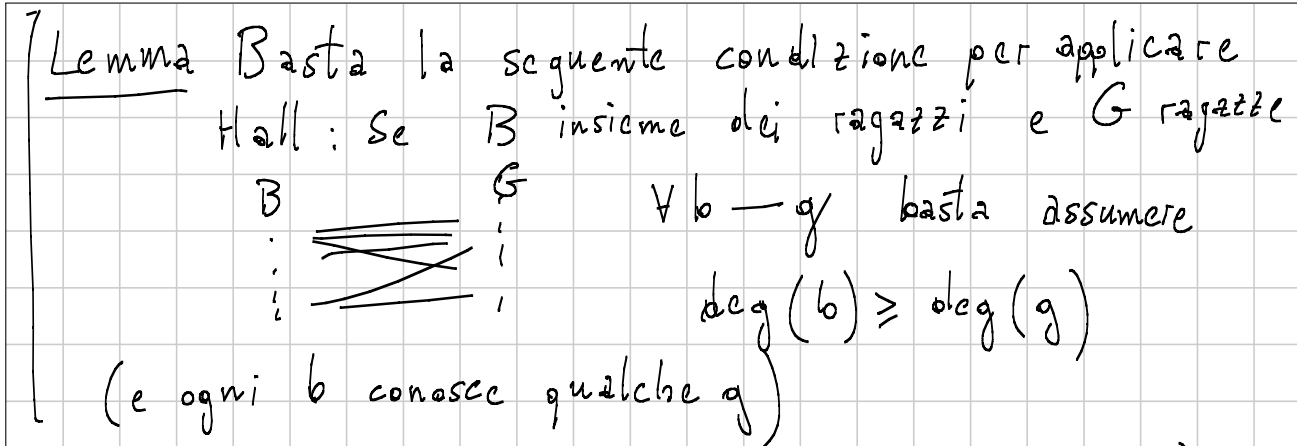 Lemma Basta la seguente condizione per applicare
Hall : Se B insieme dei ragazzi e G ragazze
B G ∀ b — g basta assumere
deg (b) ⩾ deg (g)
(e ogni b conosce qualche g)